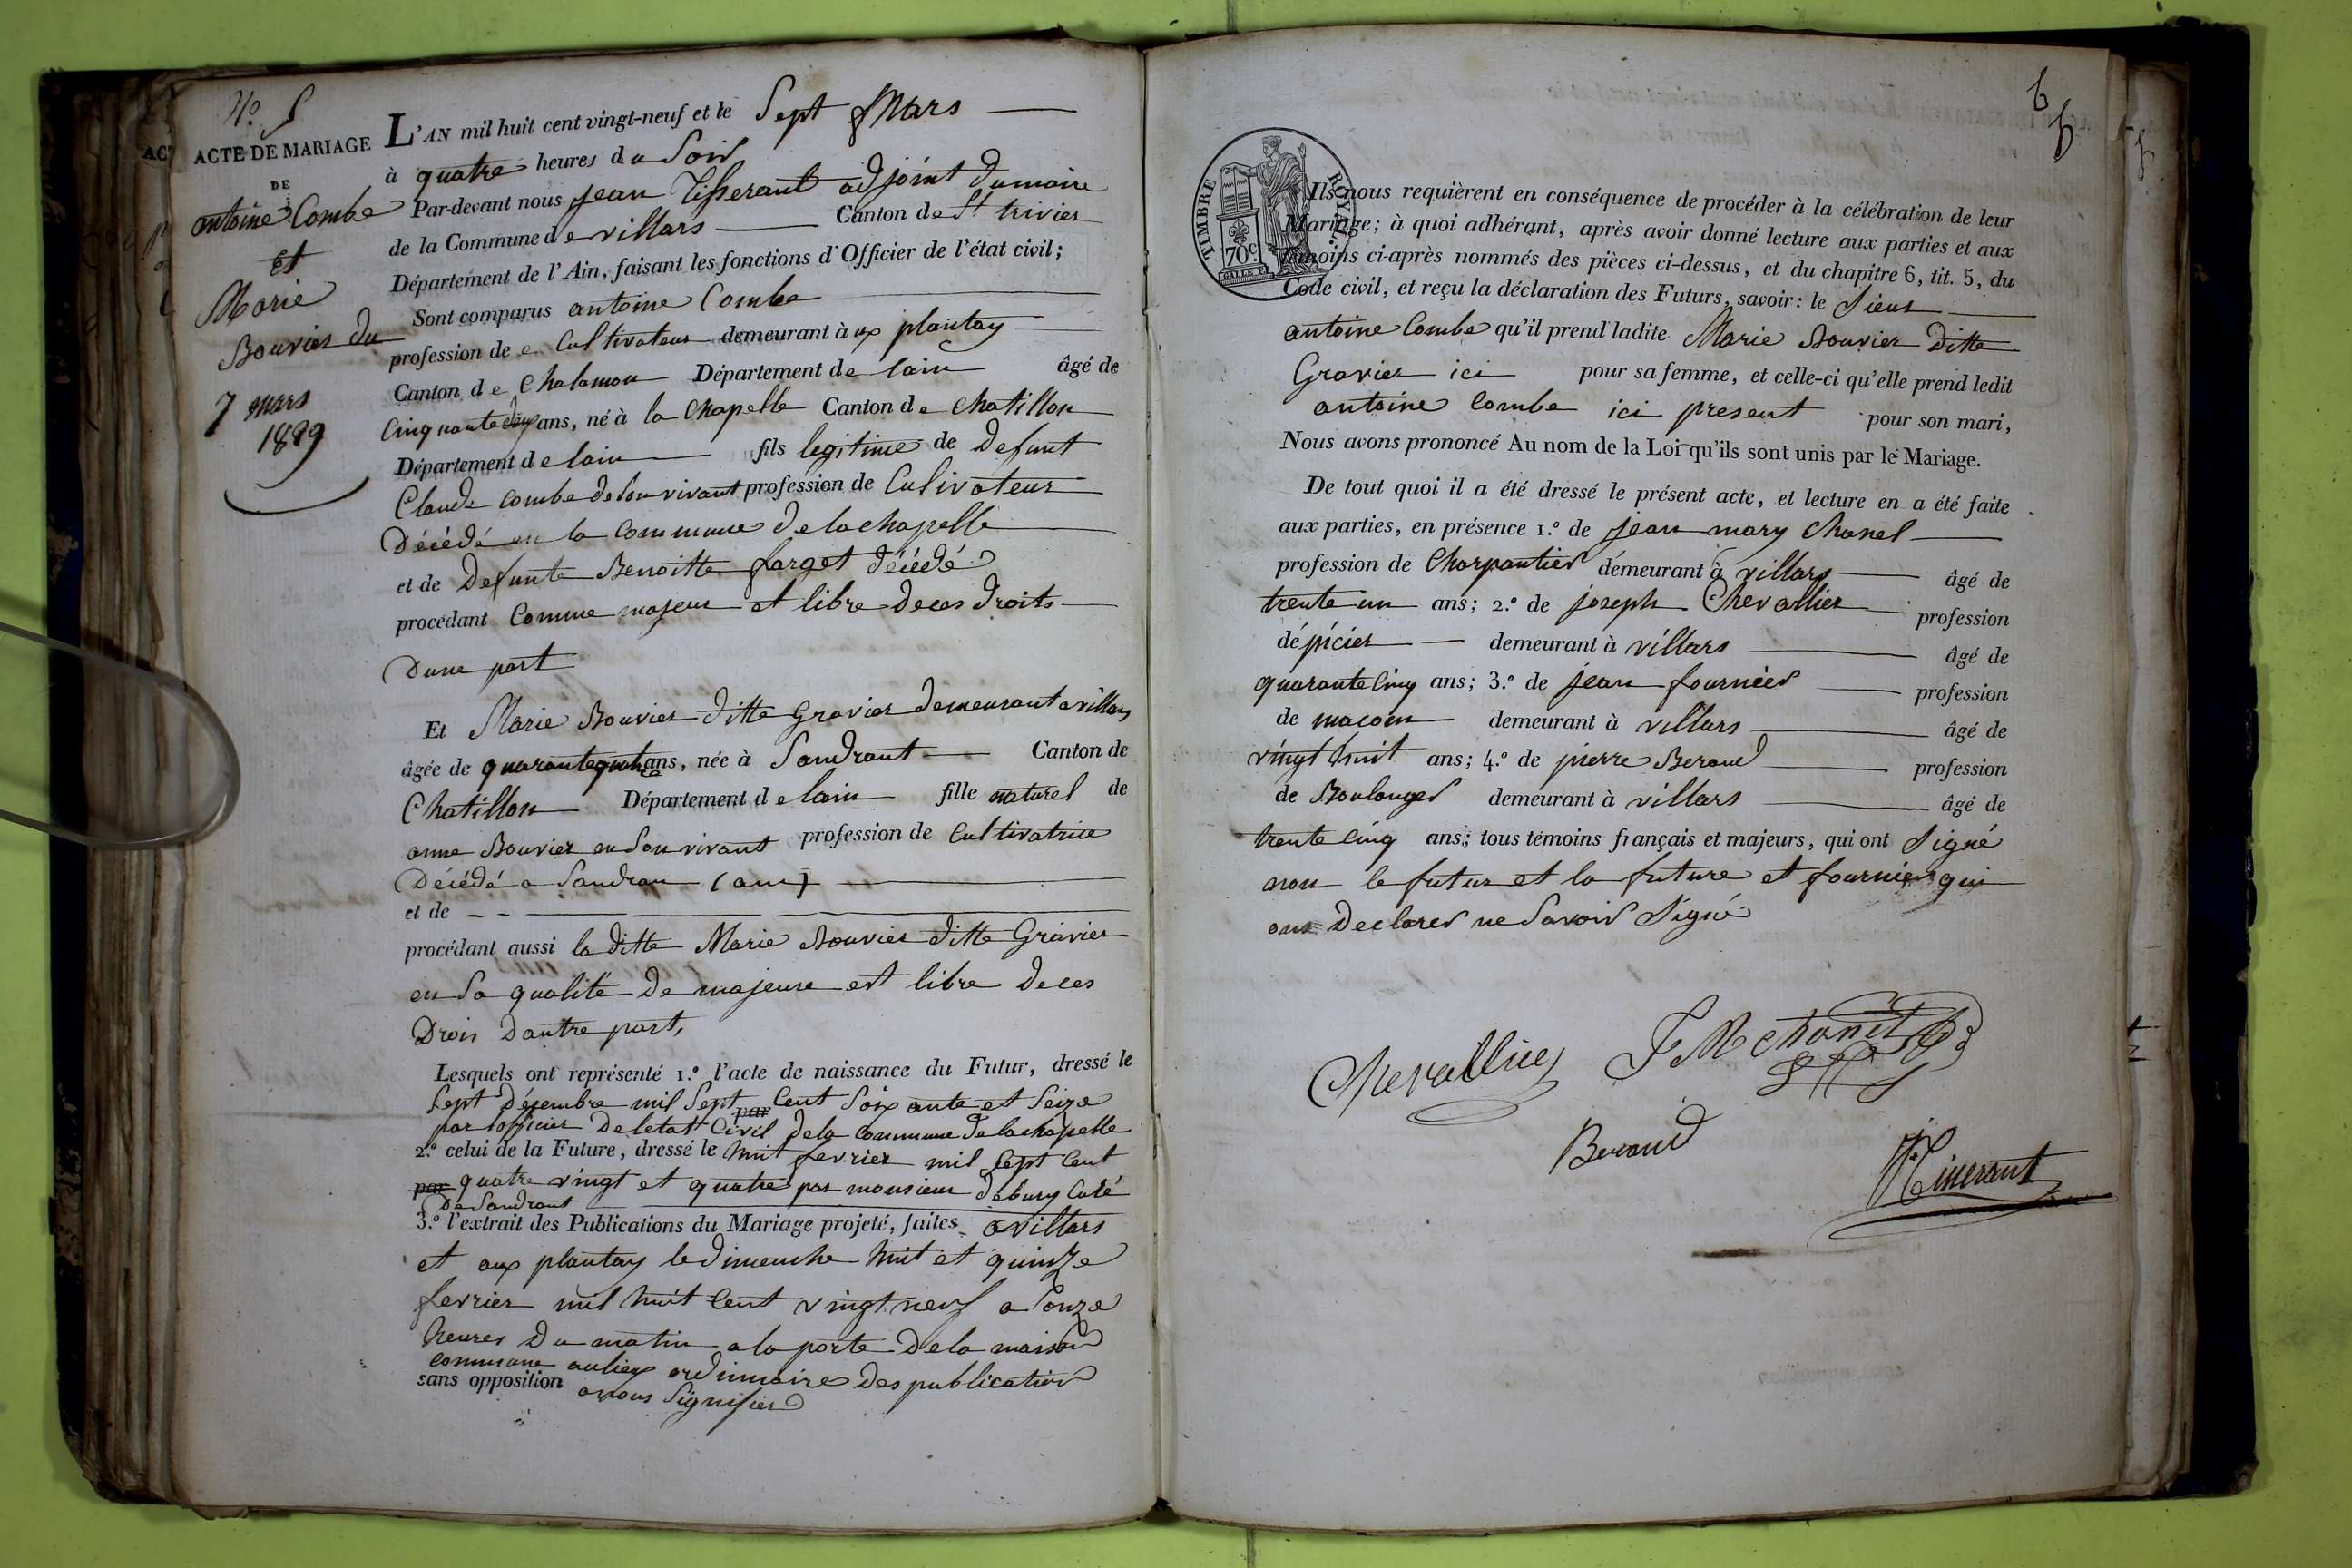 N.o 5
ACTE DE MARIAGE
DE
antoine Combe
et
Marie
Bouvier du
7 mars
1829
L'AN mil huit cent vingt-neuf et le Sept Mars
à quatre heures du Soir
Par-devant nous jean Tisserant adjoint du maire
de la Commune de villars Canton de St trivier
Département de l'Ain, faisant les fonctions d'Officier de l'état civil;
Sont comparus antoine Combe
profession de Cultivateur demeurant à ux plantay
Canton de Chalamon Département de lain âgé de
Cinquantedeux ans, né à la Chapelle Canton de Chatillon
Département de lain fils legitime de Defunt
Claude Combe de Son vivant profession de Culivateur
Décédé en la Commune de la chapelle
et de Defunte Benoitte farget décédé
procédant Comme majeur et libre de ces droits
Dune part
Et Marie Bouvier ditte Gravier demeurant a villars
âgée de quarantequatre ans, née à Sandrant Canton de
Chatillon Département de lain fille naturel de
anne Bouvier en Son vivant profession de Cultivatrice
Décédé a Sandran (ain)
et de
procédant aussi la ditte Marie Bouvier ditte Gravier
en Sa qualité de majeure est libre de ces
Drois dautre part,
Lesquels ont représenté 1.o l'acte de naissance du Futur, dressé le
Sept Désembre mil Sept Cent Soixante et Seize
par lofficier de letat Civil de la Commune de lachapelle
2.o celui de la Future, dressé le huit fevrier mil Sept Cent
par quatre vingt et quatre par monsieur debury Curé
De Sandrant
3.o l'extrait des Publications du Mariage projeté, faites a villars
et aux plantay le dimenche huit et quinze
fevrier mil huit Cent vingt neuf a onze
heures du matin a la porte de la maison
Commune au lieux ordinnaire des publication
sans opposition a nous Signifier
6
6
TIMBRE ROYAL
70c
Ils nous requièrent en conséquence de procéder à la célébration de leur
Mariage; à quoi adhérant, après avoir donné lecture aux parties et aux
témoins ci-après nommés des pièces ci-dessus, et du chapitre 6, tit. 5, du
Code civil, et reçu la déclaration des Futurs, savoir: le Sieur
antoine Combe qu'il prend ladite Marie Bouvier Ditte
Gravier ici pour sa femme, et celle-ci qu'elle prend ledit
antoine Combe ici present pour son mari,
Nous avons prononcé Au nom de la Loi qu'ils sont unis par le Mariage.
De tout quoi il a été dressé le présent acte, et lecture en a été faite
aux parties, en présence 1.o de jean mary Chanel
profession de Charpantier démeurant à villars âgé de
trente un ans; 2.o de joseph Chevallier profession
dépicier demeurant à villars âgé de
quarante Cinq ans; 3.o de jean fournier profession
de macon demeurant à villars âgé de
vingt huit ans; 4.o de pierre Beraud profession
de Boulanger demeurant à villars âgé de
trente Cinq ans; tous témoins français et majeurs, qui ont Signé
non le futur et la future et fournier qui
ons Declarer ne Savoir Signé
Chevallier J M Chanel
Beraud
Tisserant